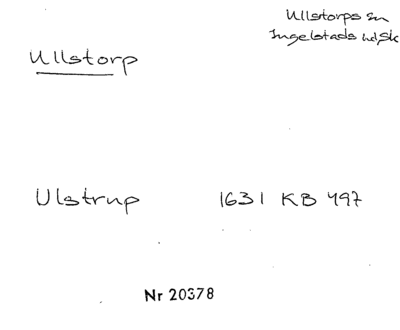 Ullstorps sn
Ingelstads hd, Sk
Ullstorp
Ulstrup 1631 KB 497
Nr 20378